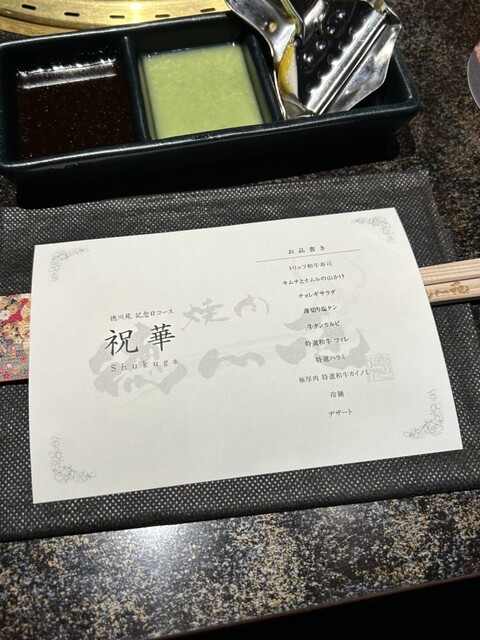 徳川苑 記念日コース
祝華
Shukuga
焼肉
お品書き
トリュフ和牛寿司
キムチとナムルの山かけ
チョレギサラダ
薄切り塩タン
牛タンカルビ
特選和牛 フィレ
特選ハラミ
極厚肉 特選和牛カイノミ
冷麺
デザート